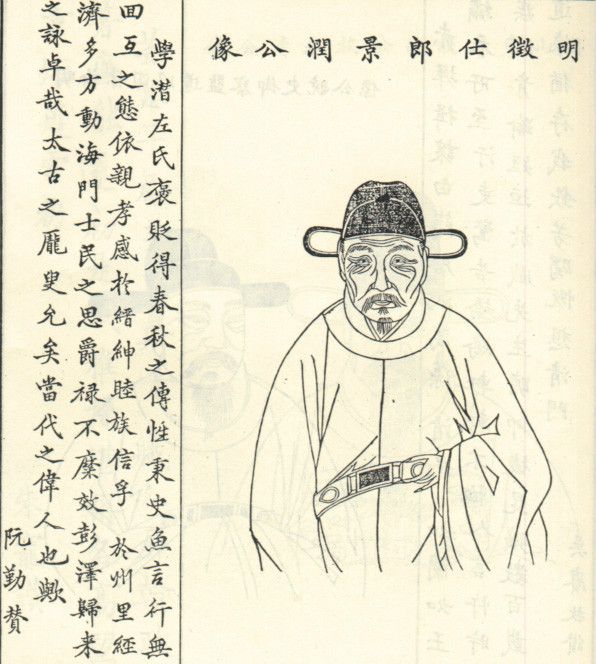 明徵仕郎景潤公像
學潛左氏褒貶得春秋之傳性秉史魚言行無
回互之態依親孝感於縉紳睦族信孚於州里經
濟多方動海門士民之思爵祿不縻效彭澤歸来
之詠卓哉太古之龐叟允矣當代之偉人也歟
阮勤贊